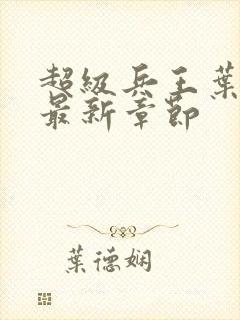 超級兵王葉
最新章節
葉德嫻